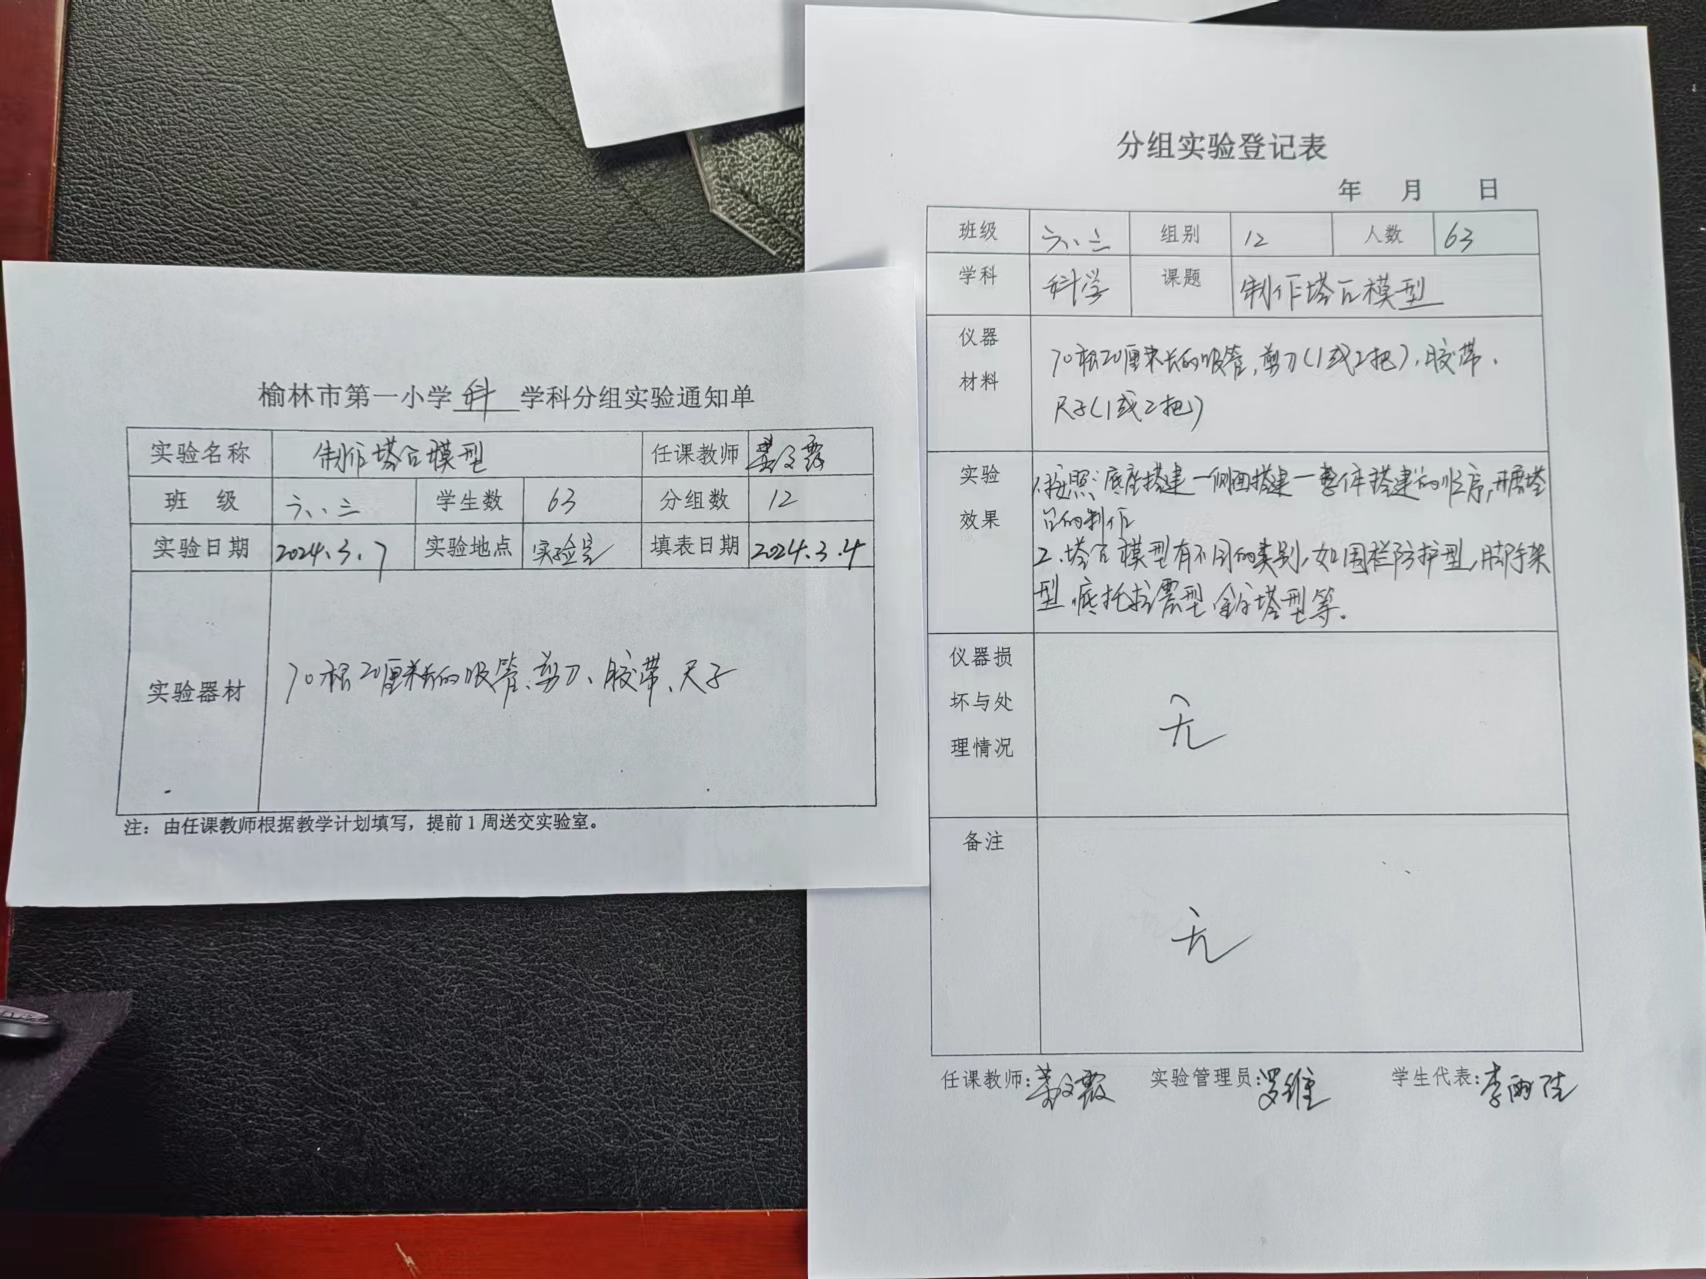 榆林市第一小学 科 学科分组实验通知单
实验名称 制作塔台模型 任课教师 霞
班 级 六、三 学生数 63 分组数 12
实验日期 2024.3.7 实验地点 实验室 填表日期 2024.3.4
实验器材 70根20厘米长的吸管、剪刀、胶带、尺子
注：由任课教师根据教学计划填写，提前1周送交实验室。
分组实验登记表
年 月 日
班级 六、三 组别 12 人数 63
学科 科学 课题 制作塔台模型
仪器
材料
70根20厘米长的吸管，剪刀（1或2把），胶带、
尺子（1或2把）
实验
效果
1.按照：底座搭建—侧面搭建—整体搭建的顺序，开展塔
台的制作
2.塔台模型有不同的类别，如围栏防护型，脚手架
型，底托抗震型，金字塔型等.
仪器损
坏与处
理情况
无
备注
无
任课教师: 霞 实验管理员: 罗维 学生代表: 李雨佳